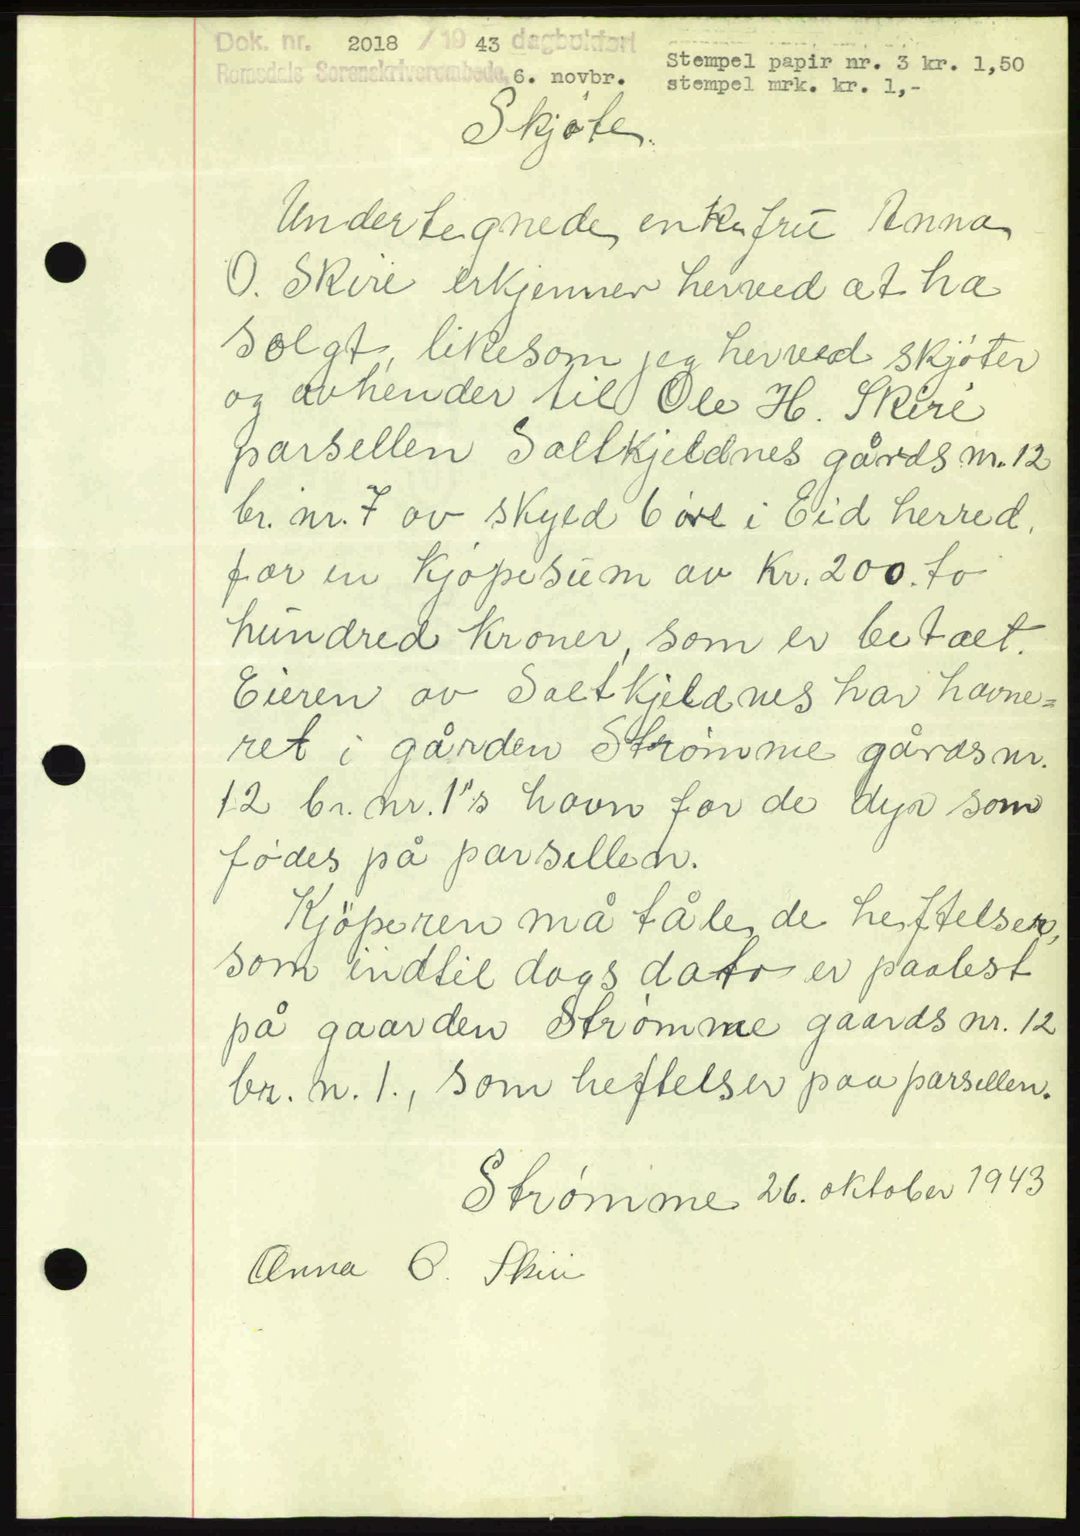 Dok. nr. 2018 / 19 43 dagbokført
Romsdals Sorenskriverembede, 6. novbr.
Stempel papir nr. 3 kr. 1,50
stempel mrk. kr. 1,-
Skjøte.
Undertegnede, enkefru Anna
O. Skiri erkjenner herved at ha
solgt, likesom jeg herved skjøter
og avhender til Ole H. Skiri
parsellen Saltkjeldnes gårds nr. 12
br. nr. 7 av skyld 6 øre i Eid herred,
for en kjøpesum av Kr. 200. to
hundred kroner, som er betalt.
Eieren av Saltkjeldnes har havne=
ret i gården Strømme gårdsnr.
12 br. nr. 1"s havn for de dyr som
fødes på parsellen.
Kjöperen må tåle de heftelser,
som indtil dags dato er paalest
på gaarden Strømme gaards nr. 12
br. n. 1., som heftelser paa parsellen.
Strømme 26. oktober 1943
Anna O. Skiri